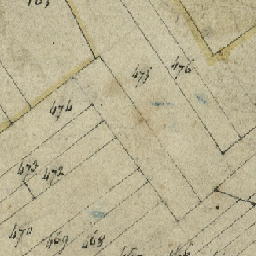 475
476
474
473
472
470
469
468